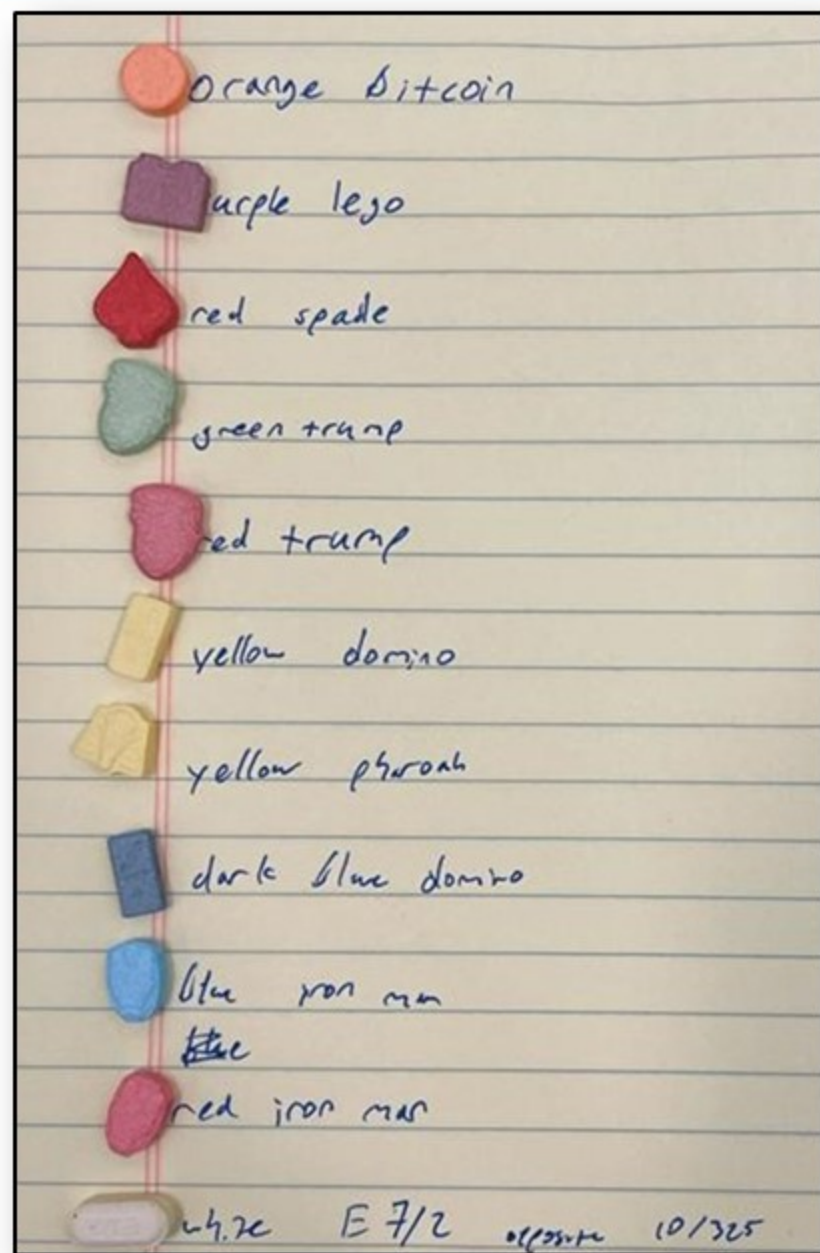 orange bitcoin
urple lego
red spade
green trump
red trump
yellow domino
yellow pharoah
dark blue domino
blue iron man
blue
red iron man
white E 7/2 opposite 10/325